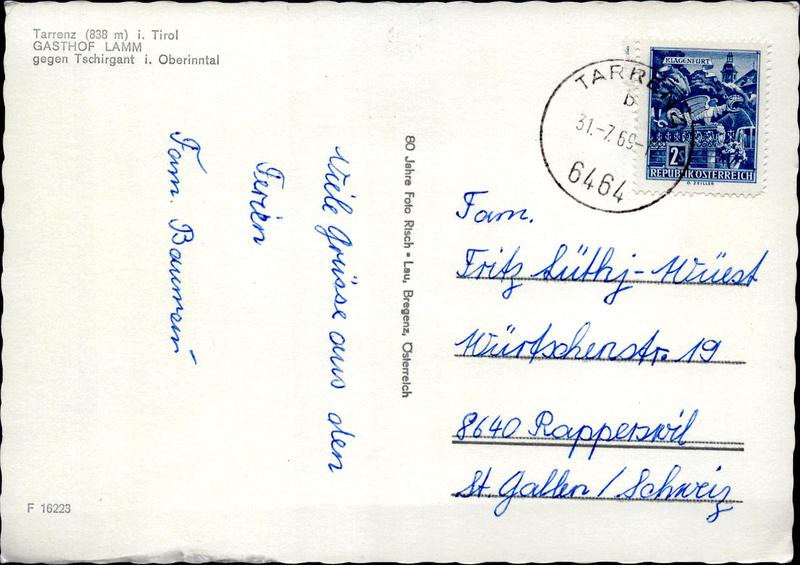 Tarrenz (838 m) i. Tirol
GASTHOF LAMM
gegen Tschirgant i. Oberinntal
Viele Grüsse aus den
Ferien
Fam. Baumann
80 Jahre Foto Risch - Lau, Bregenz, Österreich
F 16223
KLAGENFURT
2S
REPUBLIK ÖSTERREICH
O. ZEILLER
TARRENZ
b
31.-7.69-
6464
Fam.
Fritz Lüthy-Wüest
Würtschenstr. 19
8640 Rapperswil
St Gallen / Schweiz